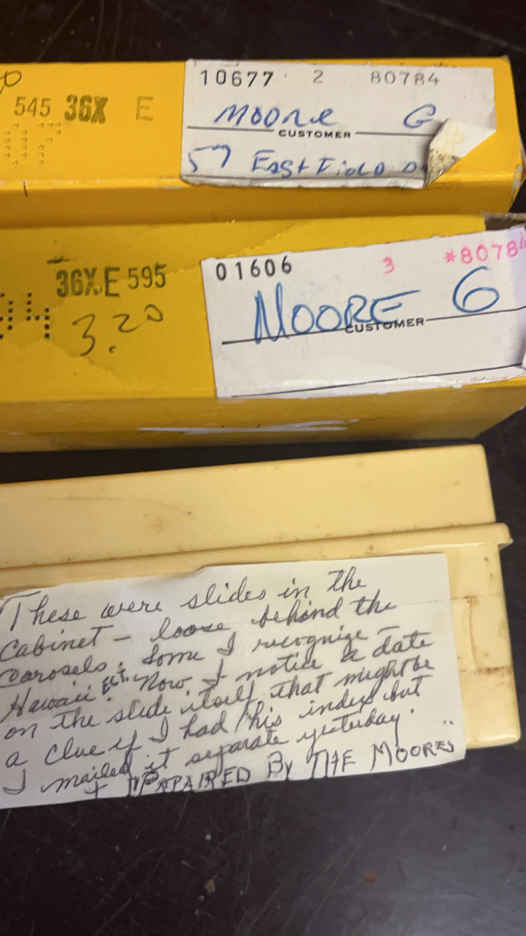 10677 2 80784
545 36X E
Moore G
CUSTOMER
57 Eastfield
01606 3 *8078
36X E 595
3.20
MOORE G
CUSTOMER
These were slides in the
Cabinet - loose behind the
Carosels. Some I recognize -
Hawaii etc. Now I notice a date
on the slide itself that might be
a clue if I had his index but
I mailed it separate yesterday.
BY THE MOORES